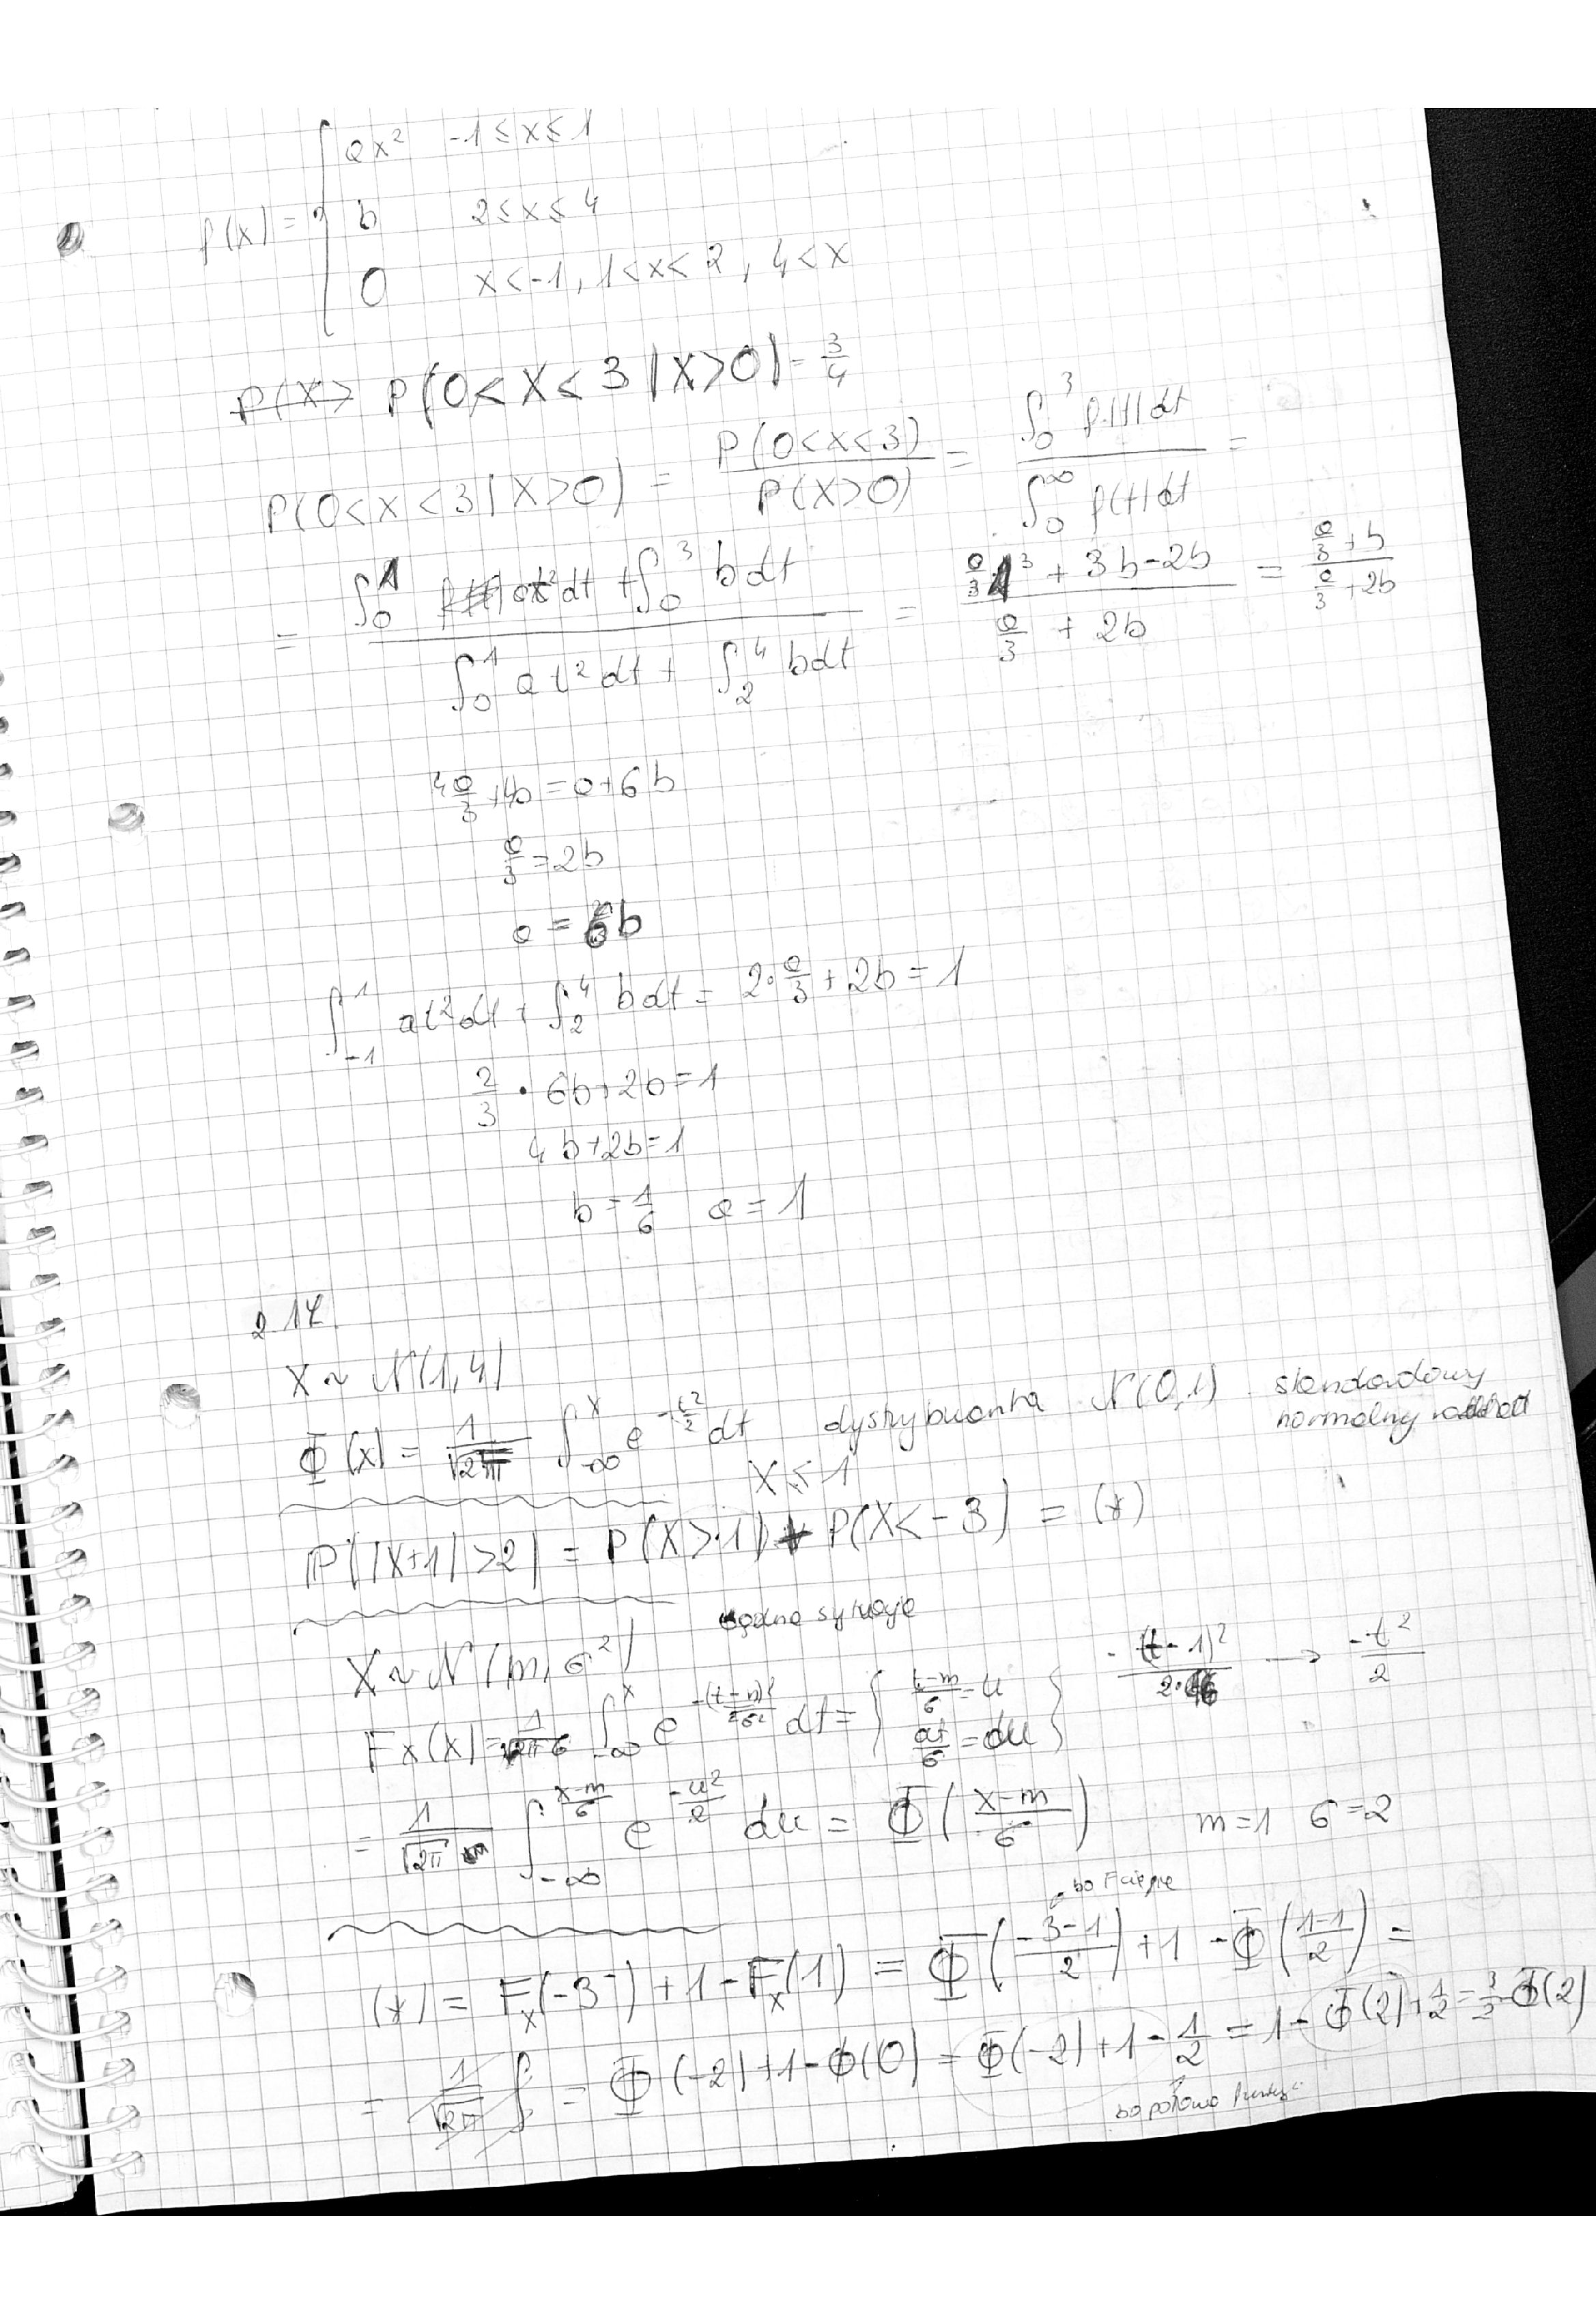 f(x) = { ax² -1 ≤ x ≤ 1
b 2 ≤ x ≤ 4
0 x < -1, 1 < x < 2, 4 < x
P(0 < X < 3 | X > 0) = 3/4
P(0 < X < 3 | X > 0) = P(0 < X < 3) / P(X > 0) = ∫₀³ f(t)dt / ∫₀^∞ f(t)dt =
= (∫₀¹ at²dt + ∫₀³ bdt) / (∫₀¹ at²dt + ∫₂⁴ bdt) = (a/3·1³ + 3b-2b) / (a/3 + 2b) = (a/3 + b) / (a/3 + 2b)
4a/3 + 4b = a + 6b
a/3 = 2b
a = 6b
∫₋₁¹ at²dt + ∫₂⁴ bdt = 2·a/3 + 2b = 1
2/3 · 6b + 2b = 1
4b + 2b = 1
b = 1/6 a = 1
2.17.
X ~ N(1,4)
Φ(x) = 1/√2π ∫₋∞^x e^(-t²/2) dt dystrybuanta N(0,1) standardowy
normalny
X ≤ 1
P(|X+1| > 2) = P(X > 1) + P(X < -3) = (*)
X ~ N(m, σ²)
F_X(x) = 1/(√2π σ) ∫₋∞^x e^(-(t-m)²/2σ²) dt = { (t-m)/σ = u
dt/σ = du } -(t-1)²/2·σ → -t²/2
= 1/√2π ∫₋∞^((x-m)/σ) e^(-u²/2) du = Φ((x-m)/σ) m=1 σ=2
bo F ciągłe
(*) = F_X(-3⁻) + 1 - F_X(1) = Φ((-3-1)/2) + 1 - Φ((1-1)/2) =
= 1/√2π ∫ = Φ(-2) + 1 - Φ(0) = Φ(-2) + 1 - 1/2 = 1 - Φ(2) + 1/2 = 3/2 - Φ(2)
bo połowa